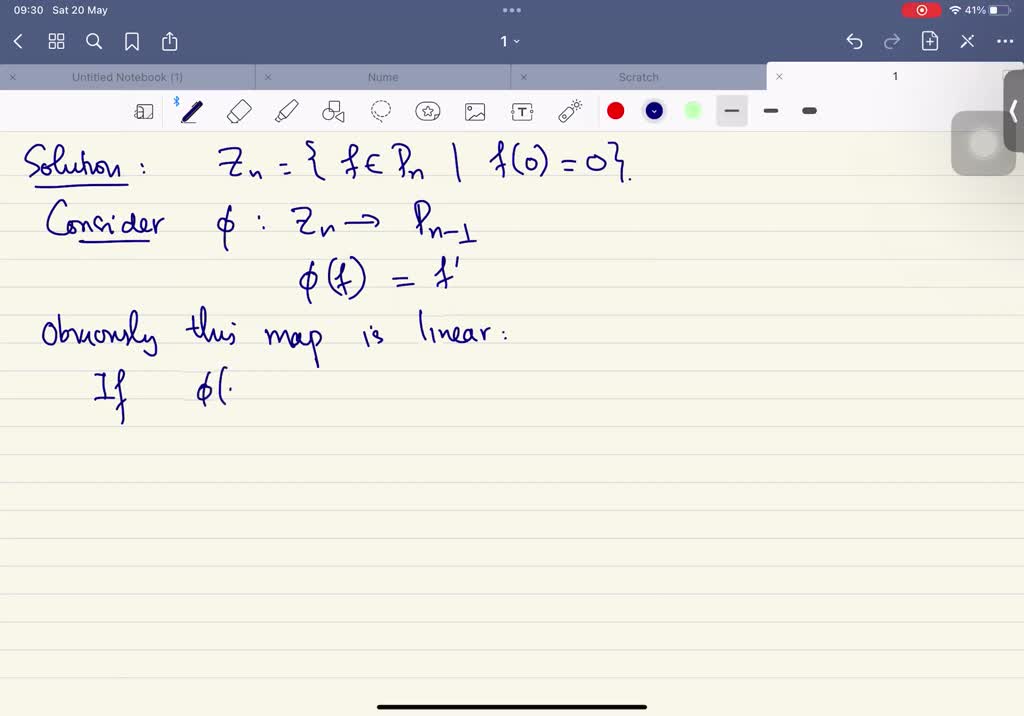 09:30 Sat 20 May
41%
1
Untitled Notebook (1) Nume Scratch 1
Solution : Zn = { f ∈ Pn | f(0) = 0}.
Consider ϕ : Zn → Pn-1
ϕ(f) = f'
Obviously this map is linear :
If ϕ(